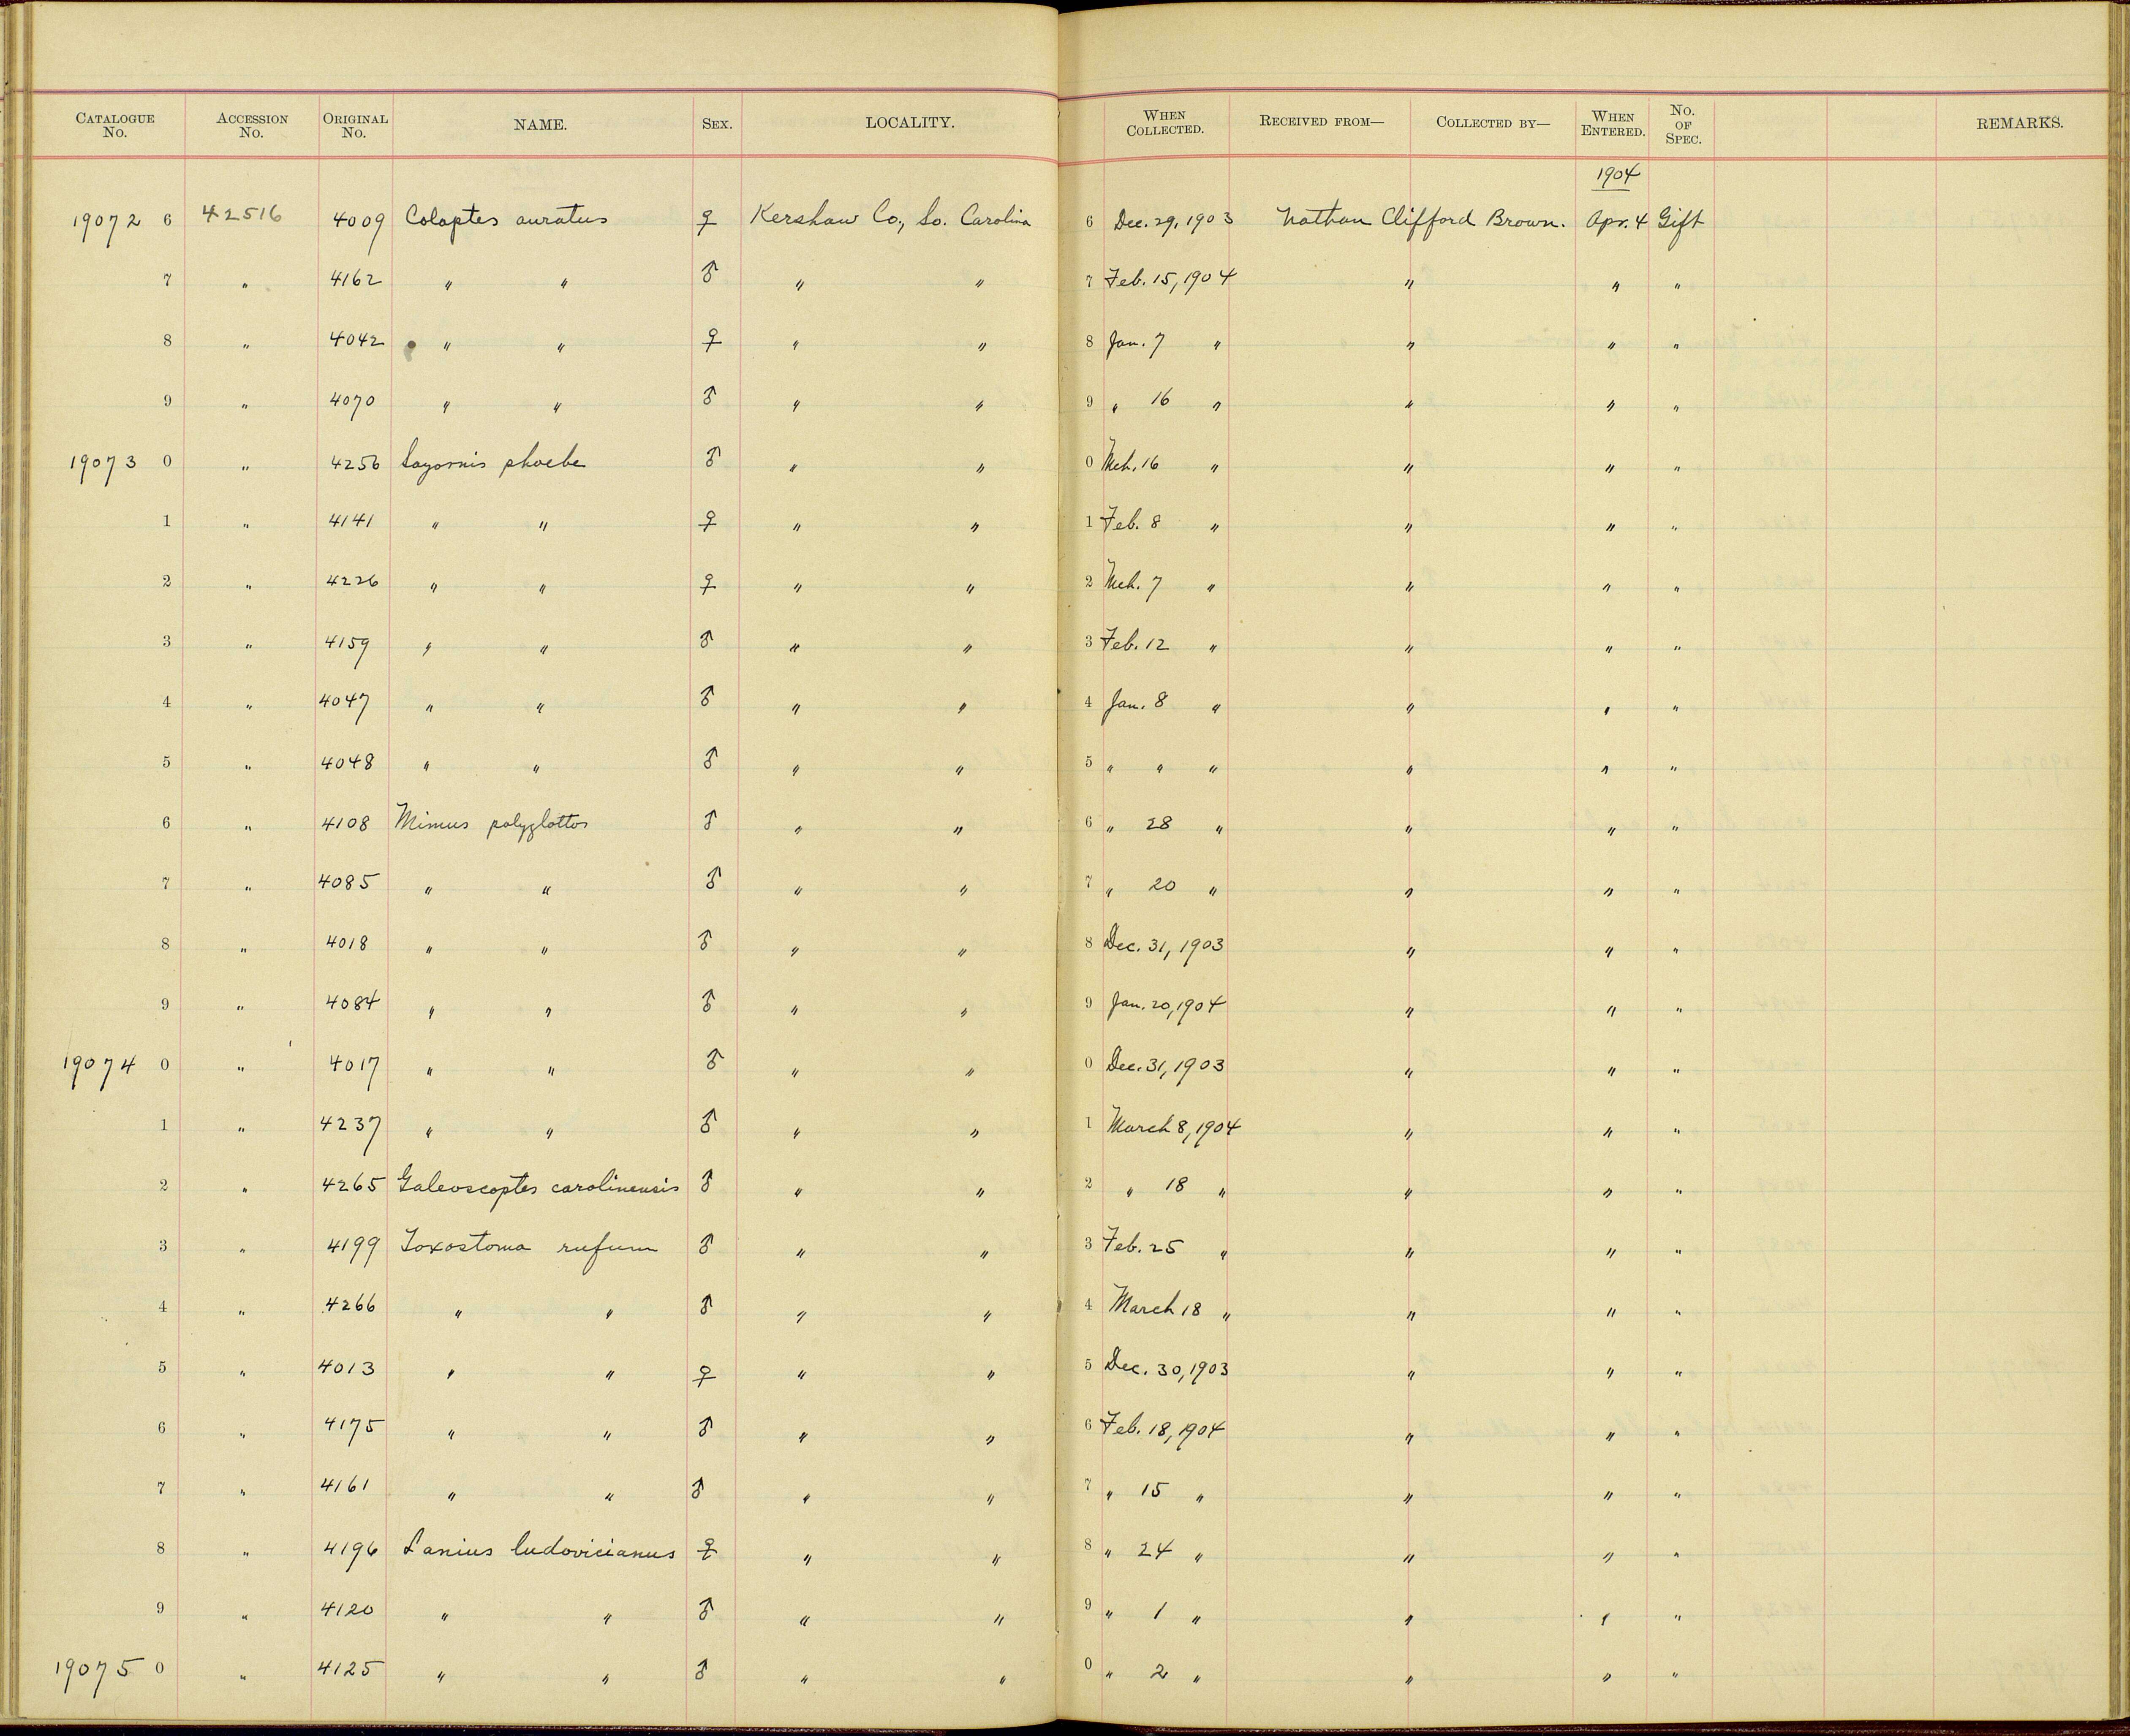 CATALOGUE No. ACCESSION No. ORIGINAL No. NAME. SEX. LOCALITY. WHEN COLLECTED. RECEIVED FROM— COLLECTED BY— WHEN ENTERED. No. OF SPEC. REMARKS.
1904
19072 6 42516 4009 Colaptes auratus ♀ Kershaw Co., So. Carolina 6 Dec. 29, 1903 Nathan Clifford Brown. Apr. 4 Gift
7 " 4162 " " ♂ " " 7 Feb. 15, 1904 " " "
8 " 4042 " " ♀ " " 8 Jan. 7 " " " "
9 " 4070 " " ♂ " " 9 " 16 " " " "
19073 0 " 4256 Sayornis phoebe ♂ " " 0 Mch. 16 " " " "
1 " 4141 " " ♀ " " 1 Feb. 8 " " " "
2 " 4226 " " ♀ " " 2 Mch. 7 " " " "
3 " 4159 " " ♂ " " 3 Feb. 12 " " " "
4 " 4047 " " ♂ " " 4 Jan. 8 " " " "
5 " 4048 " " ♂ " " 5 " " " " " "
6 " 4108 Mimus polyglottos ♂ " " 6 " 28 " " " "
7 " 4085 " " ♂ " " 7 " 20 " " " "
8 " 4018 " " ♂ " " 8 Dec. 31, 1903 " " "
9 " 4084 " " ♂ " " 9 Jan. 20, 1904 " " "
19074 0 " 4017 " " ♂ " " 0 Dec. 31, 1903 " " "
1 " 4237 " " ♂ " " 1 March 8, 1904 " " "
2 " 4265 Galeoscoptes carolinensis ♂ " " 2 " 18 " " " "
3 " 4199 Toxostoma rufum ♂ " " 3 Feb. 25 " " " "
4 " 4266 " " ♂ " " 4 March 18 " " " "
5 " 4013 " " ♀ " " 5 Dec. 30, 1903 " " "
6 " 4175 " " ♂ " " 6 Feb. 18, 1904 " " "
7 " 4161 " " ♂ " " 7 " 15 " " " "
8 " 4196 Lanius ludovicianus ♀ " " 8 " 24 " " " "
9 " 4120 " " ♂ " " 9 " 1 " " " "
19075 0 " 4125 " " ♂ " " 0 " 2 " " " "